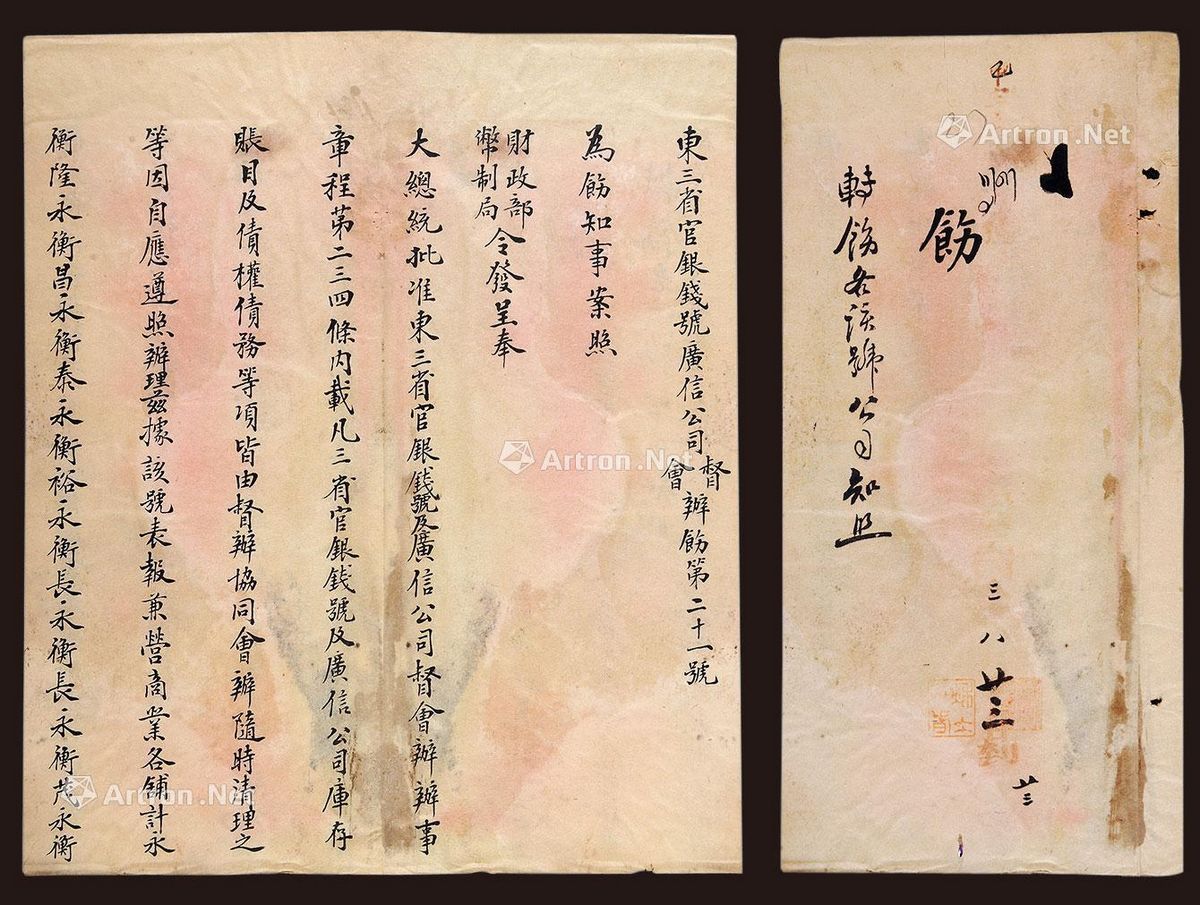 東三省官銀錢號廣信公司督會辦飭第二十一號
為飭知事案照
財政部幣制局令發呈奉
大總統批准東三省官銀錢號及廣信公司督會辦辦事
章程第二三四條內載凡三省官銀錢號及廣信公司庫存
賬目及債權債務等項皆由督辦協同會辦隨時清理之
等因自應遵照辦理茲據該號表報兼營商業各舖計永
衡隆永衡昌永衡泰永衡裕永衡長永衡長永衡茂永衡
飭
轉飭各該號公司知照
三
八
廿三
到
廿三
Artron.Net
Artron.Net
Artron.Net
Artron.Net